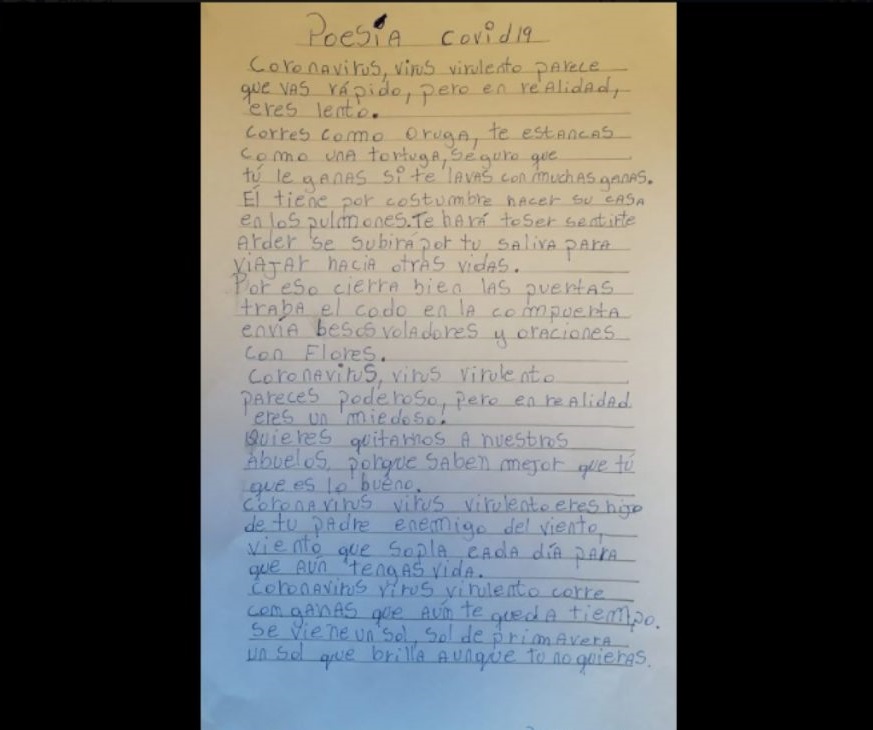 Poesía covid19
Coronavirus, virus virulento parece
que vas rápido, pero en realidad,
eres lento.
Corres como oruga, te estancas
como una tortuga, seguro que
tú le ganas si te lavas con muchas ganas.
Él tiene por costumbre hacer su casa
en los pulmones. Te hará toser sentirte
arder se subirá por tu saliva para
viajar hacia otras vidas.
Por eso cierra bien las puertas
traba el codo en la compuerta
envía besos voladores y oraciones
con Flores.
Coronavirus, virus virulento
pareces poderoso, pero en realidad
eres un miedoso.
Quieres quitarnos a nuestros
Abuelos, porque saben mejor que tú
que es lo bueno.
Coronavirus virus virulento eres hijo
de tu padre enemigo del viento,
viento que sopla cada día para
que aún tengas vida.
Coronavirus virus virulento corre
com ganas que aúm te queda tiempo.
Se viene un sol, sol de primavera
un sol que brilla aunque tu no quieras.